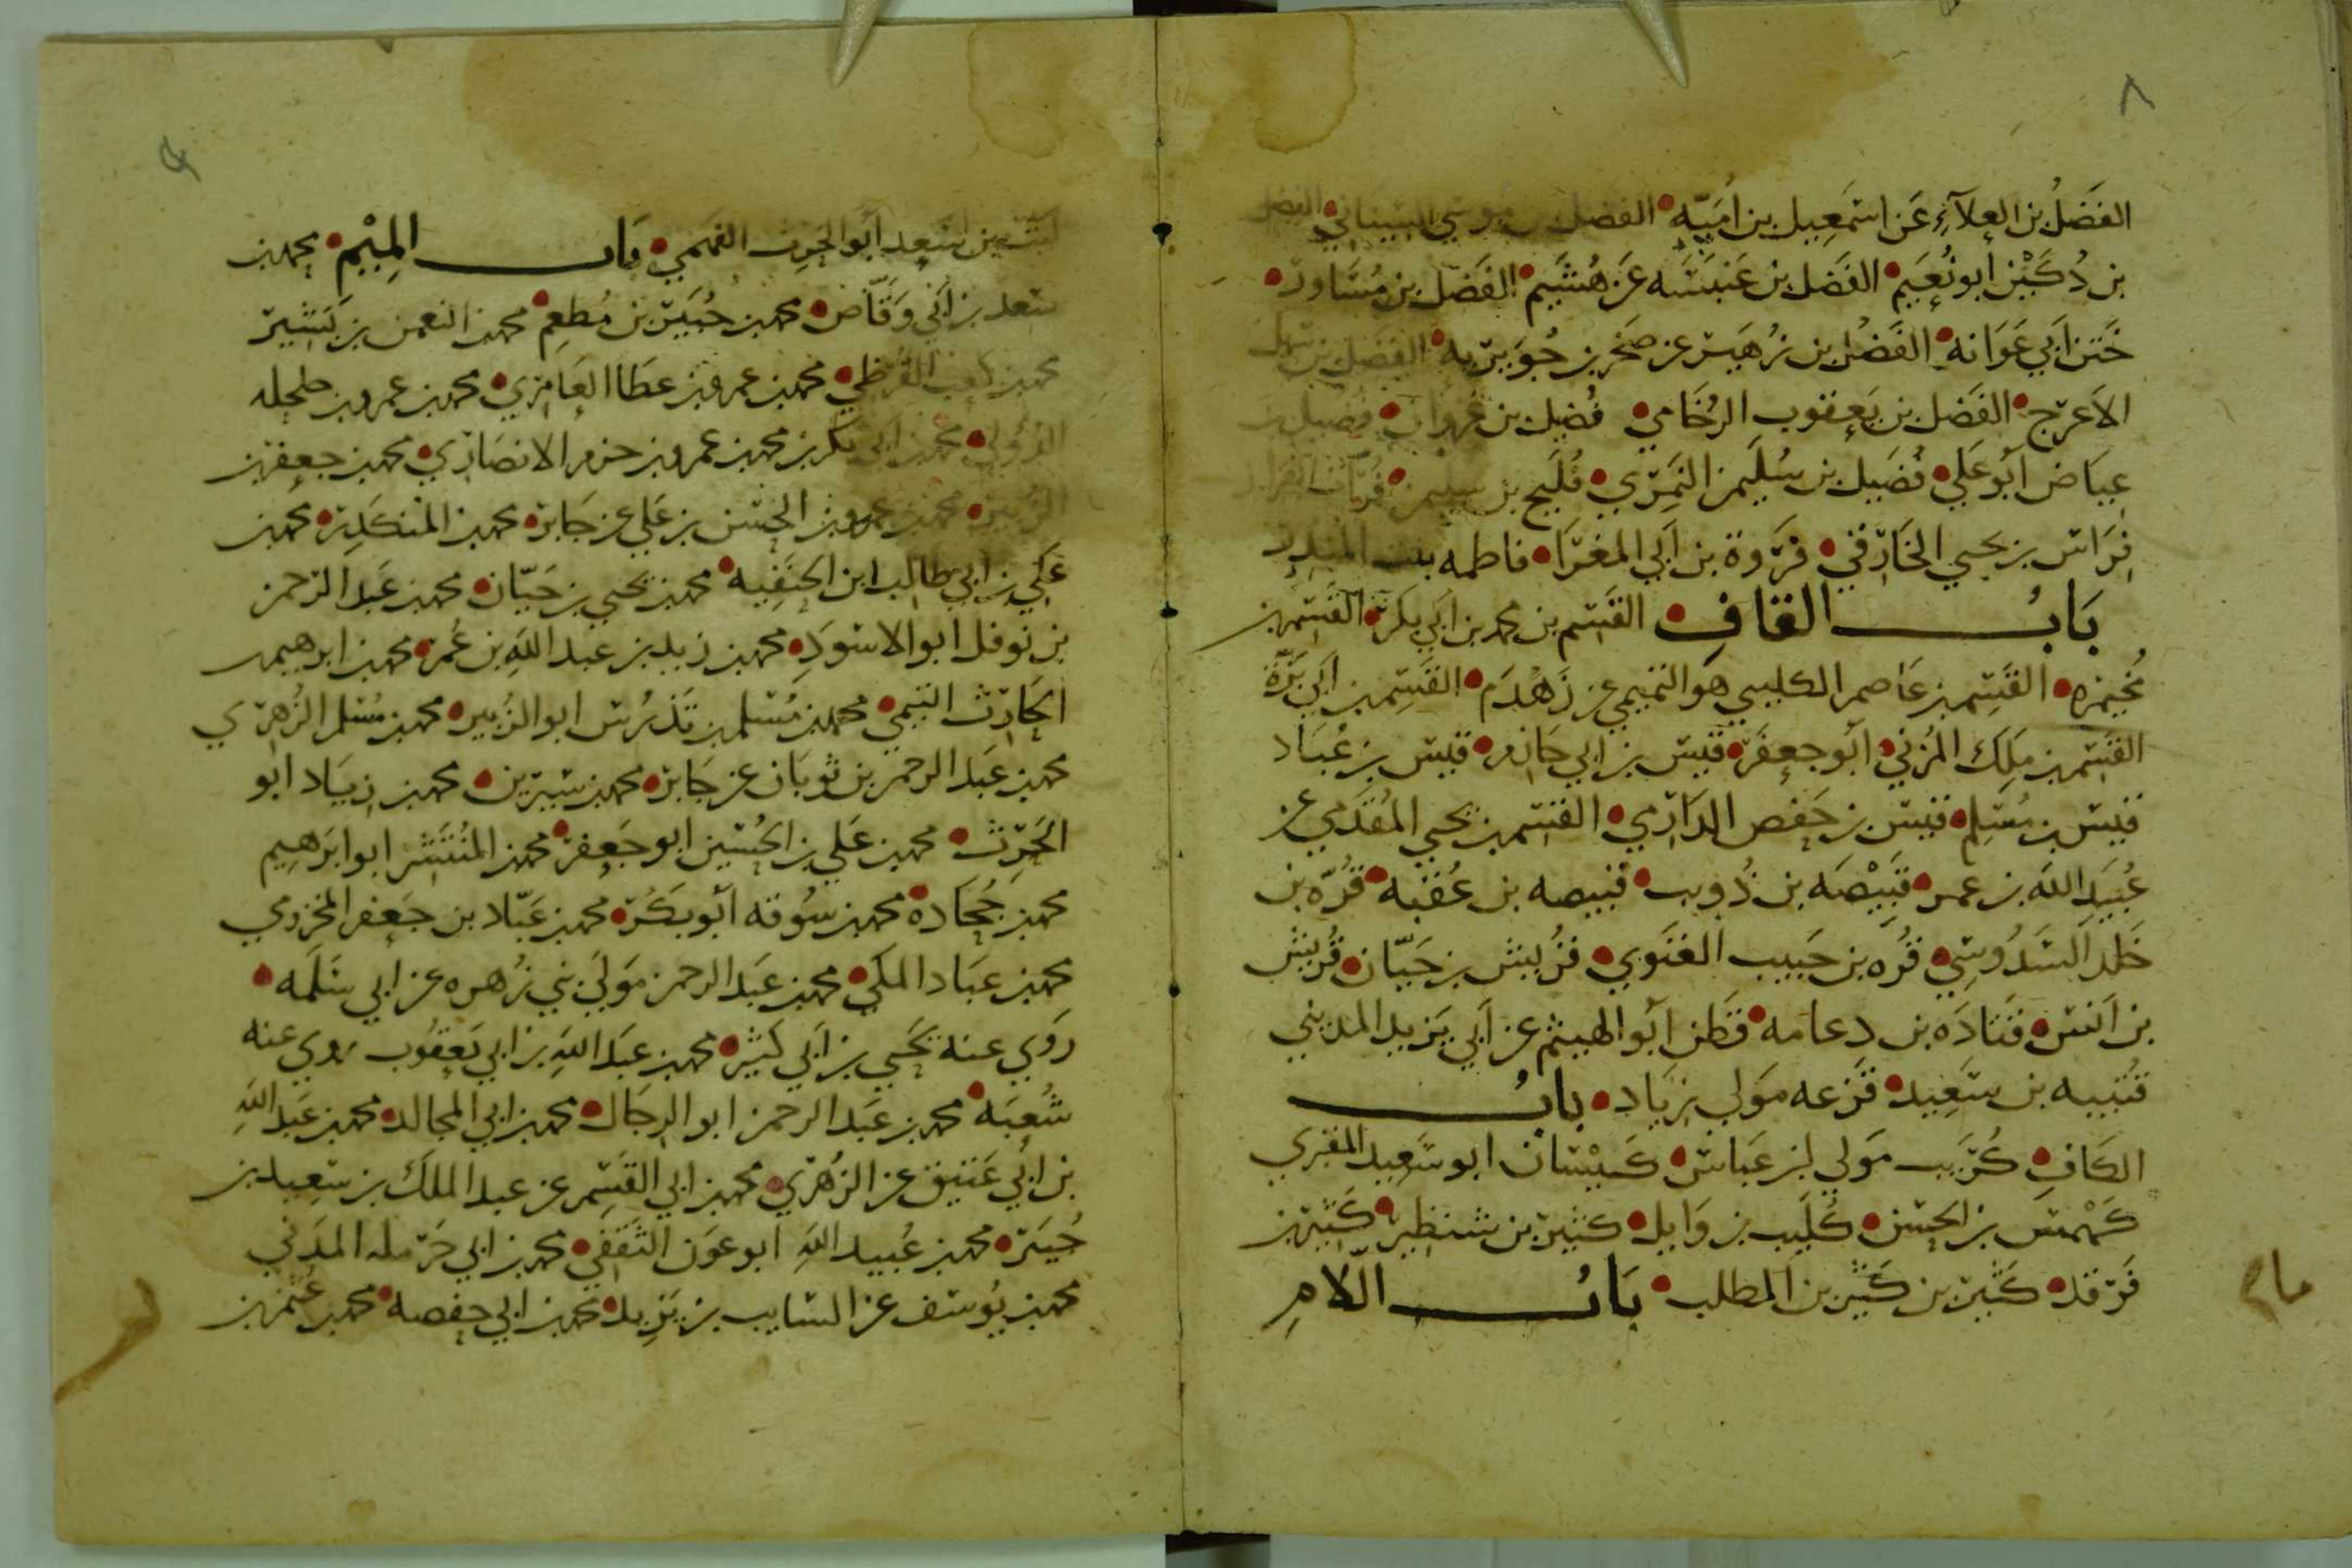 ٨
الفَضلُ بن العلآءِ عَن اسمَعِيل بن امَيّه • الفضل بن موسي السيناني • الفضل
بن دُكَيْن أبو نُعَيم • الفَضل بن عَنبسَه عَن هُشَيم • الفَضل بن مُسَاور •
خَتَن ابي عَوَانه • الفَضل بن زُهَير عن صَخر بن جُوَيريه • الفضل بن سهل
الاَعرج • الفَضل بن يَعقوب الرُخَامي • فُضيل بن غزوان • فضيل بن
عِيَاض اَبُو عَلي • فُضَيل بن سُلَيمن النُمَيري • فُلَيح بن سليمن • فرات القزاز
فِرَاس بن يحيي الخَارفي • فَروَة بن اَبي المغرَا • فاطمه بنت المنذر
بَابُ القافِ • القسَم بن محمد بن ابَي بكرَ • القَسم بن
مُخَيمره • القَسِم بن عَاصم الكليبي هو التميمي عن زَهْدَم • القَسِم بن ابَي بَزّة
القَسم بن مَلِك المُزني • اَبو جعفَر • قَيس بن ابي حَازم • قيس بن عُبَاد
قيس بن مُسلِم • قيس بن حَفص الدَارمي • القسم بن يحيي المُقدَمي عن
عُبَيَد الله بن عمر • قَبِيْصَه بن ذُويب • قبيصه بن عُقبه • قُرّه بن
خَلد السَدُوسِي • قُره بن حَبيب الغنَوي • قُريش بن حَيّان • قُريش
بن اَنس • قَتَادَه بن دِعامه • قَطن اَبو الهيثم عن اَبي يَزيد المديني
قُتيبه بن سَعِيد • قزعه مَولي زيَاد • بابُ
الكَافِ • كُرَيب مَولي ابن عَباس • كَيْسان ابو سَعِيد المقبري
كَهْمَس بن الحسَن • كُلَيب بن وَايل • كثير بن شنظير • كَثير بن
فَرقد • كَثير بن كَثير بن المطلب • بَابُ اللاّمِ
ليث بن سعد أبو الحرث الفهمي • بَاب المِيْم • محمد بن
سعد بن اَبي وَقّاص • محمد بن جُبَير بن مُطعِم • محمد بن النعمن بن بَشير
محمد بن كعب القُرظي • محمد بن عمرو بن عطَا العَامِري • محمد بن عمرو بن حلحله
الدُؤلي • محمد بن ابي بكر بن محمد بن عمرو بن حزم الانصَاري • محمد بن جعفر بن
الزبير • محمد بن عمرو بن الحسَن بن عَلي عن جَابر • محمد بن المنكَدِر • محمد بن
عَلي بن ابي طالب ابن الحنَفِيه • محمد بن يحيي بن حَيّان • محمد بن عَبد الرَحمن
بن نوفل ابو الاسوَدِ • محمد بن زيد بن عبد اللهِ بن عُمَر • محمد بن ابرهيم بن
الحَارِث التيمي • محمد بن مُسلم بن تَدرُس ابو الزُبير • محمد بن مُسلم الزُهرَي
محمد بن عَبد الرحمن بن ثوبَان عن جَابر • محمد بن سيرين • محمد بن زيَاد ابو
الحَرِث • محمد بن عَلي بن الحُسَين ابو جَعفر • محمد بن المُنتَشر ابو ابرَهِيم
محمد بن جُحَادة • محمد بن سُوقه اَبو بَكر • محمد بن عَبّاد بن جَعفر المخزومي
محمد بن عبَاد المكي • محمد بن عَبد الرحمن مَولَي بَني زُهره عن ابي سَلَمه •
رَوَي عنه يَحَيي بن اَبي كَثير • محمد بن عبَد اللهِ بن ابي يَعقُوب روي عنه
شُعبَه • محمد بن عَبد الرحمن ابو الرجَال • محمد بن ابي المجالد • محمد بن عَبد اللهِ
بن ابي عَتيق عن الزهري • محمد بن ابي القَسِم عن عبد الملَك بن سَعِيد بن
جُبَير • محمد بن عُبيد اللهِ ابو عَون الثَقَفي • محمد بن ابي حَرمله المدَني
محمد بن يُوسف عن السايب بن يَزِيد • محمد بن ابي حفصه • محمد بن عُثمن بن